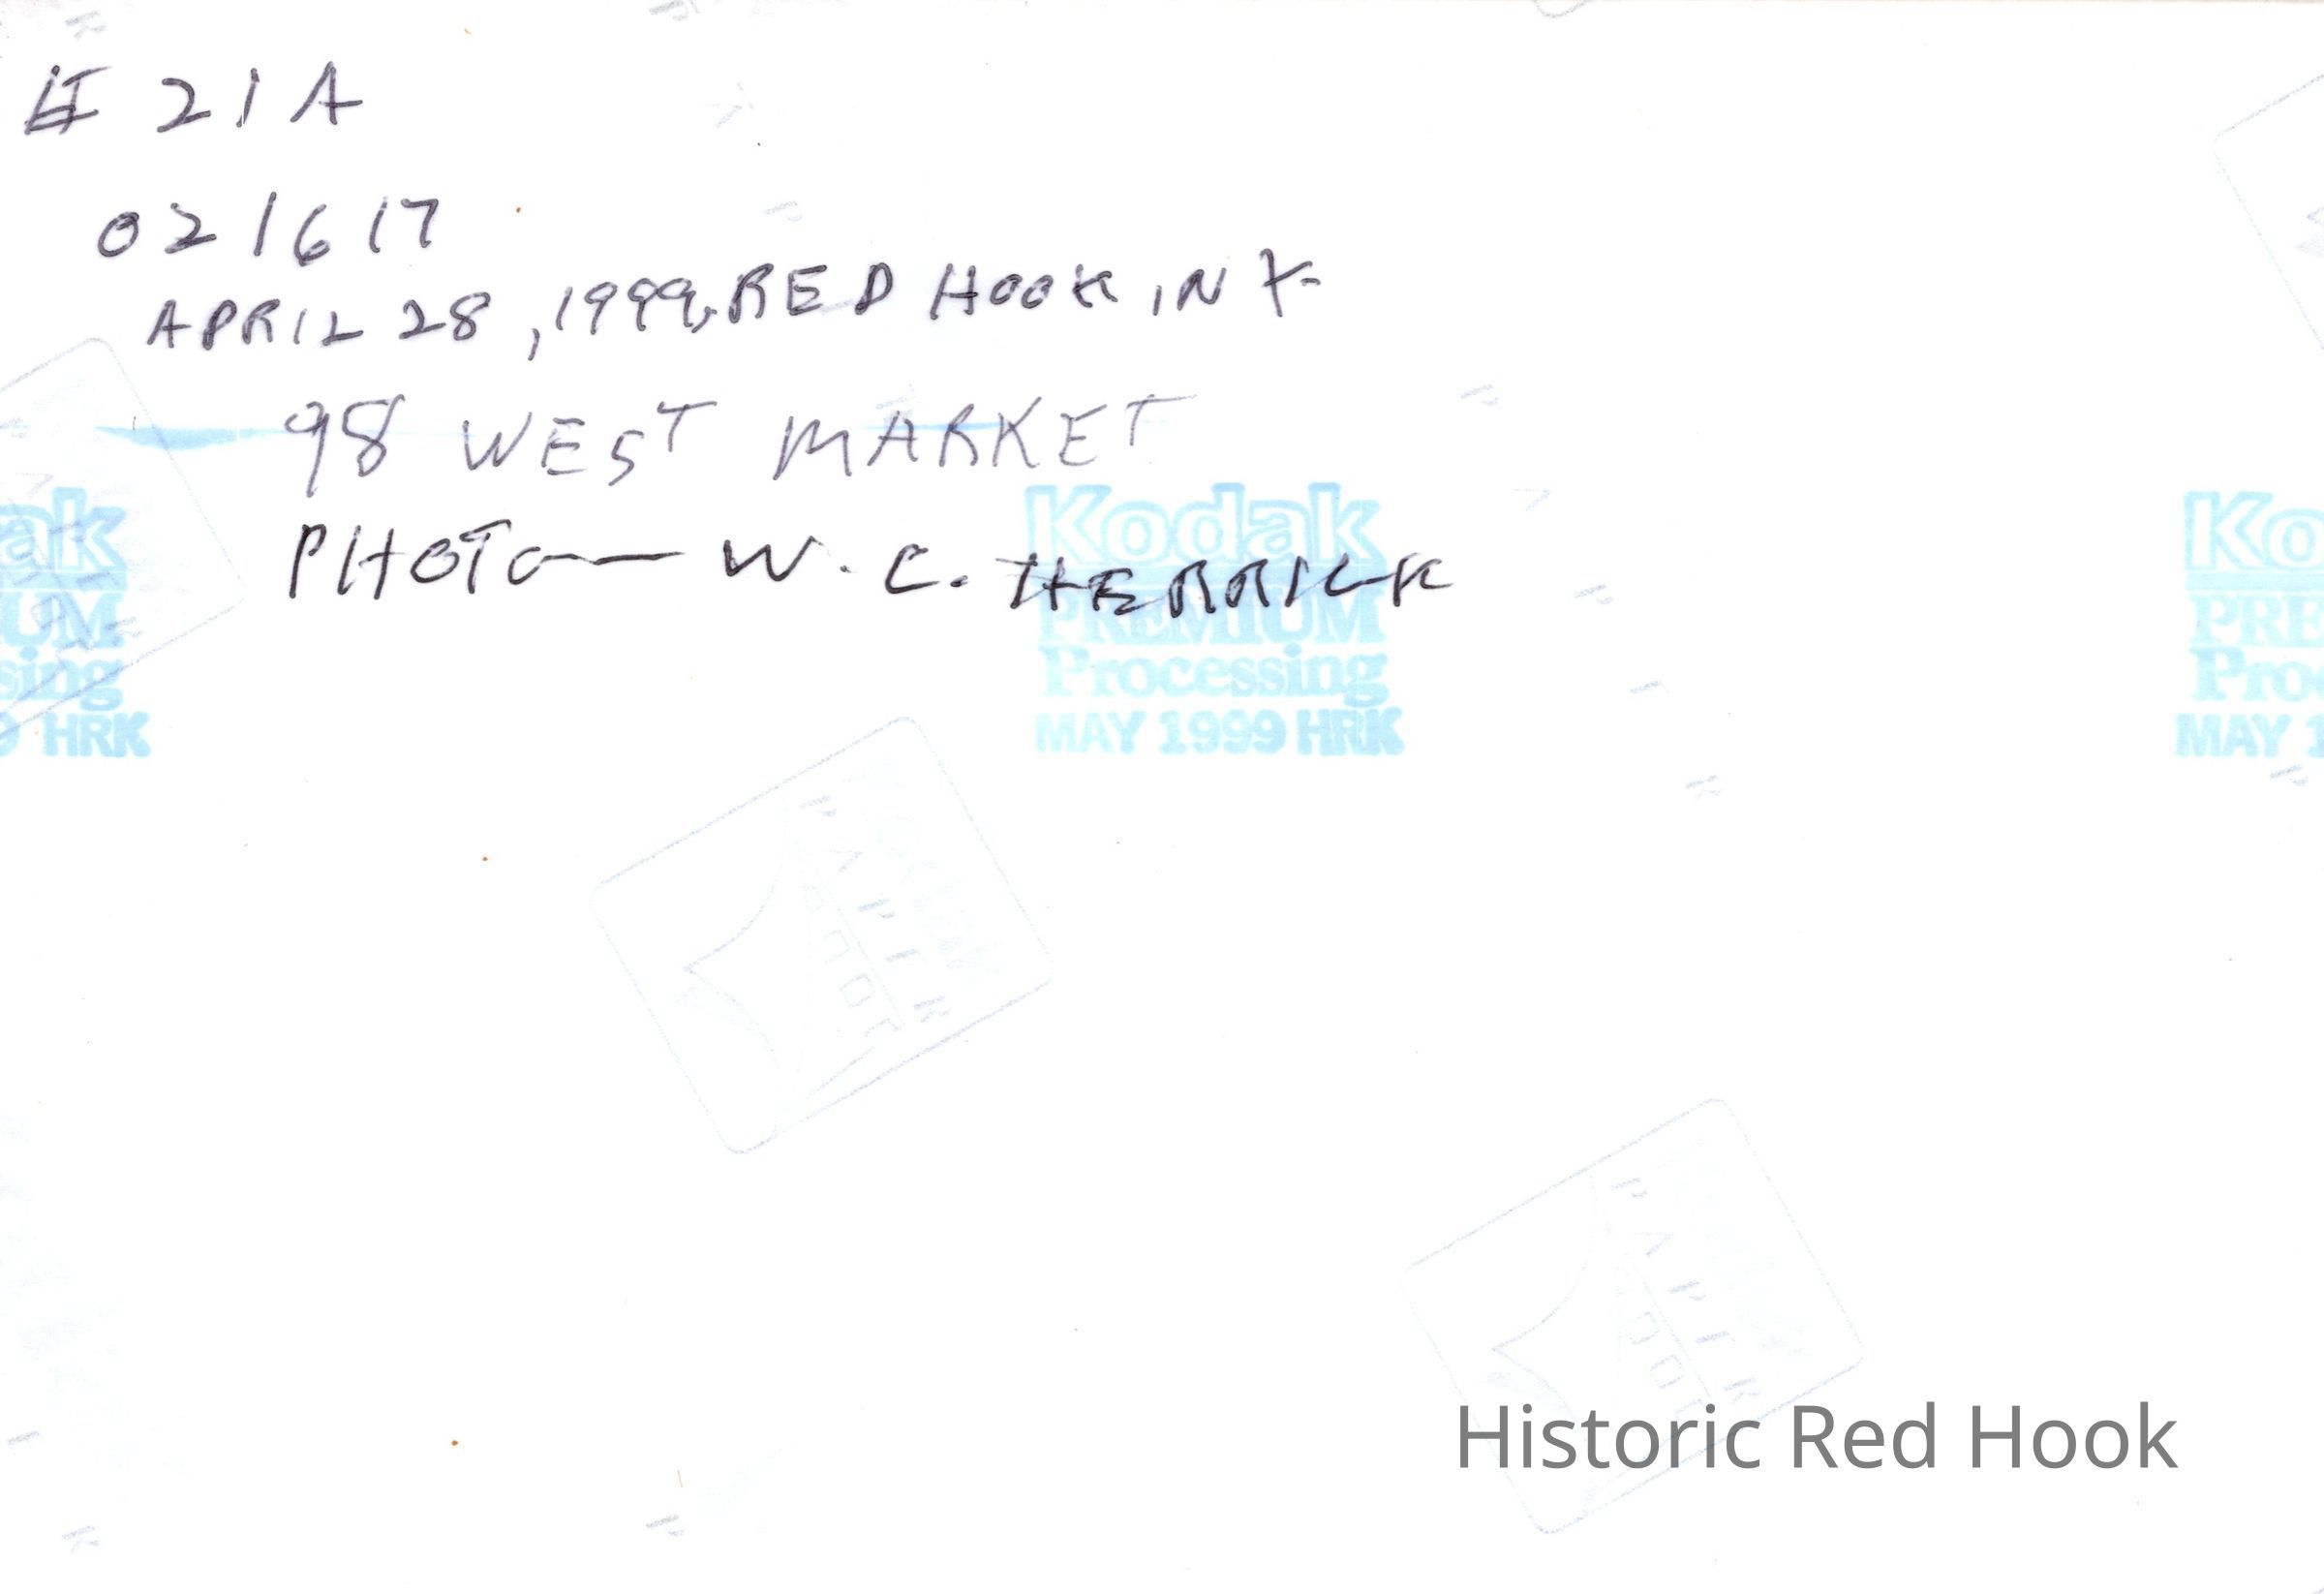 # 21A
021617
APRIL 28, 1999, RED HOOK, NY.
98 WEST MARKET
PHOTO — W. C. HERRICK
Kodak
PREMIUM
Processing
MAY 1999 HRK
ak
UM
sing
9 HRK
Ko
PRE
Proc
MAY 1
Historic Red Hook